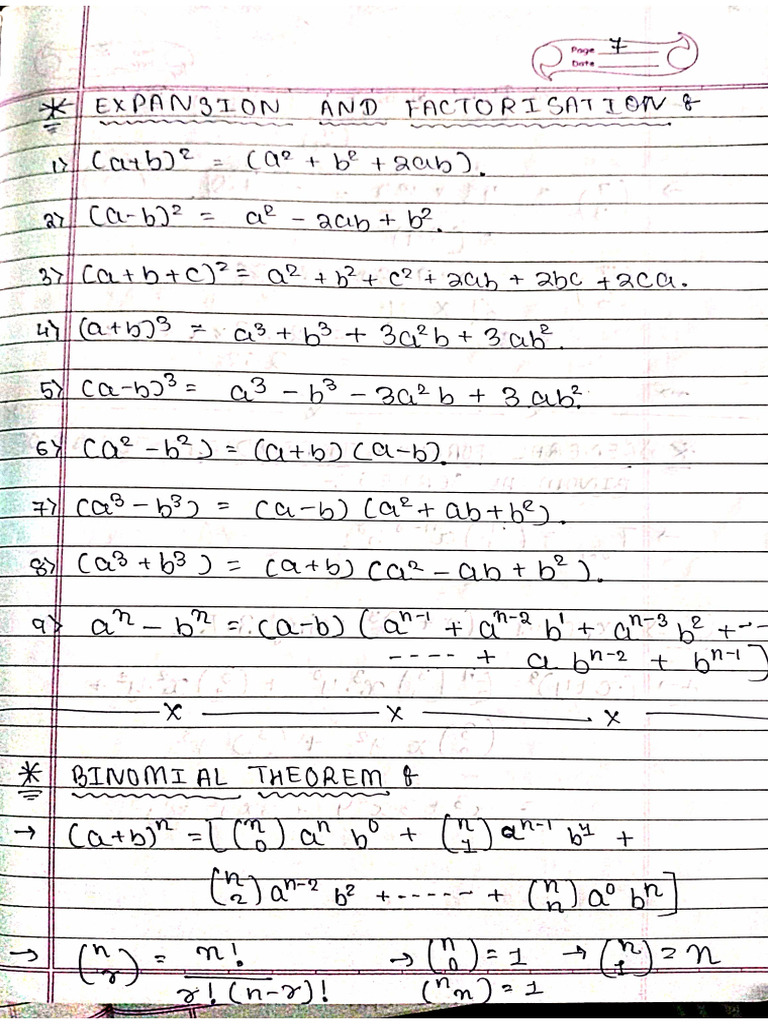 Page 7
Date
* EXPANSION AND FACTORISATION :
1) (a+b)² = (a² + b² + 2ab).
2) (a-b)² = a² - 2ab + b².
3) (a+b+c)² = a² + b² + c² + 2ab + 2bc + 2ca.
4) (a+b)³ = a³ + b³ + 3a²b + 3ab².
5) (a-b)³ = a³ - b³ - 3a²b + 3ab².
6) (a² - b²) = (a+b) (a-b).
7) (a³ - b³) = (a-b) (a² + ab + b²).
8) (a³ + b³) = (a+b) (a² - ab + b²).
9) aⁿ - bⁿ = (a-b) (aⁿ⁻¹ + aⁿ⁻² b¹ + aⁿ⁻³ b² + ----
---- + a bⁿ⁻² + bⁿ⁻¹]
x x x
* BINOMIAL THEOREM :
→ (a+b)ⁿ = [(n 0) aⁿ b⁰ + (n 1) aⁿ⁻¹ b¹ +
(n 2) aⁿ⁻² b² + ------ + (n n) a⁰ bⁿ]
→ (n r) = n! / r! (n-r)! → (n 0) = 1 → (n 1) = n
(n n) = 1